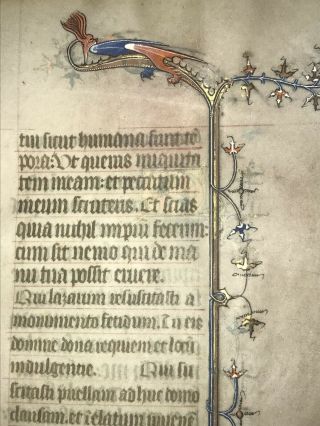 tui sicut humana sunt tẽ
pora: Ut queras iniquita
tem meam: et peccatum
meum scruteris. Et scias
quia nichil impiũ fecerim:
cum sit nemo qui de ma
nu tua possit eruere.
Qui lazarum resuscitasti a
monumento fetidum. Tu eis
domine dona requiem et locũ
indulgentie. Qui su
scitasti puellam adhuc domo
clausam. et